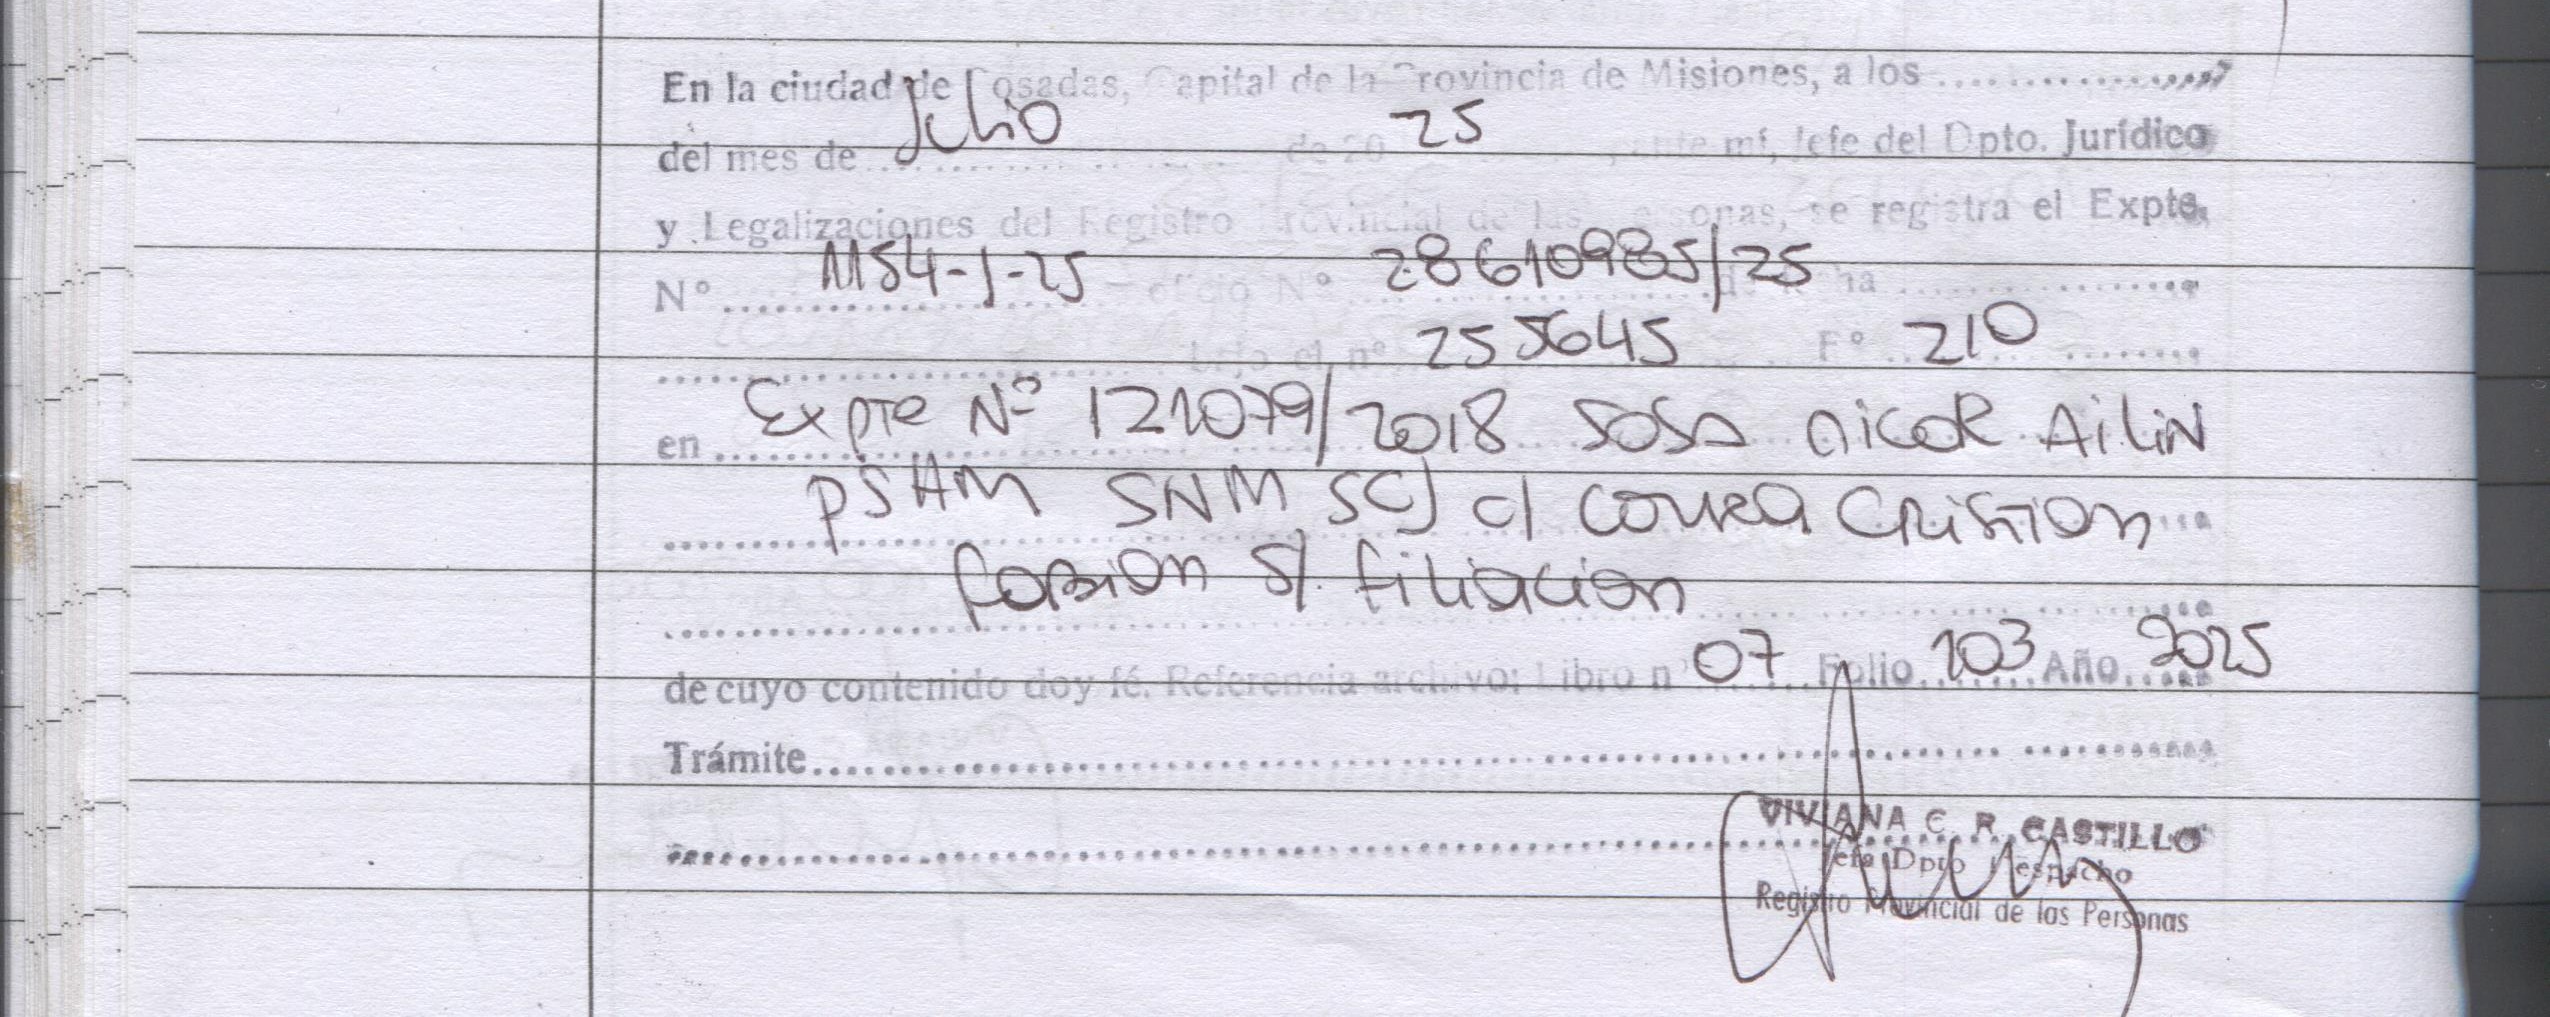 En la ciudad de Posadas, Capital de la Provincia de Misiones, a los ....................
del mes de Julio de 20 25, ante mí, Jefe del Dpto. Jurídico
y Legalizaciones del Registro Provincial de las Personas, se registra el Expte.
N° 1154-J-25 oficio N° 28610985/25 de fecha ....................
.................... bajo el n° 255645 F° 210
en Expte Nº 121079/2018 SOSA nicoR AiLiN
PSHM SNM SCJ c/ CORREA CRISTIAN
fabian S/. filiacion
de cuyo contenido doy fé. Referencia archivo: Libro n° 07 Folio 103 Año 2025
Trámite....................
VIVIANA C. R. CASTILLO
Jefa Dpto Despacho
Registro Provincial de las Personas